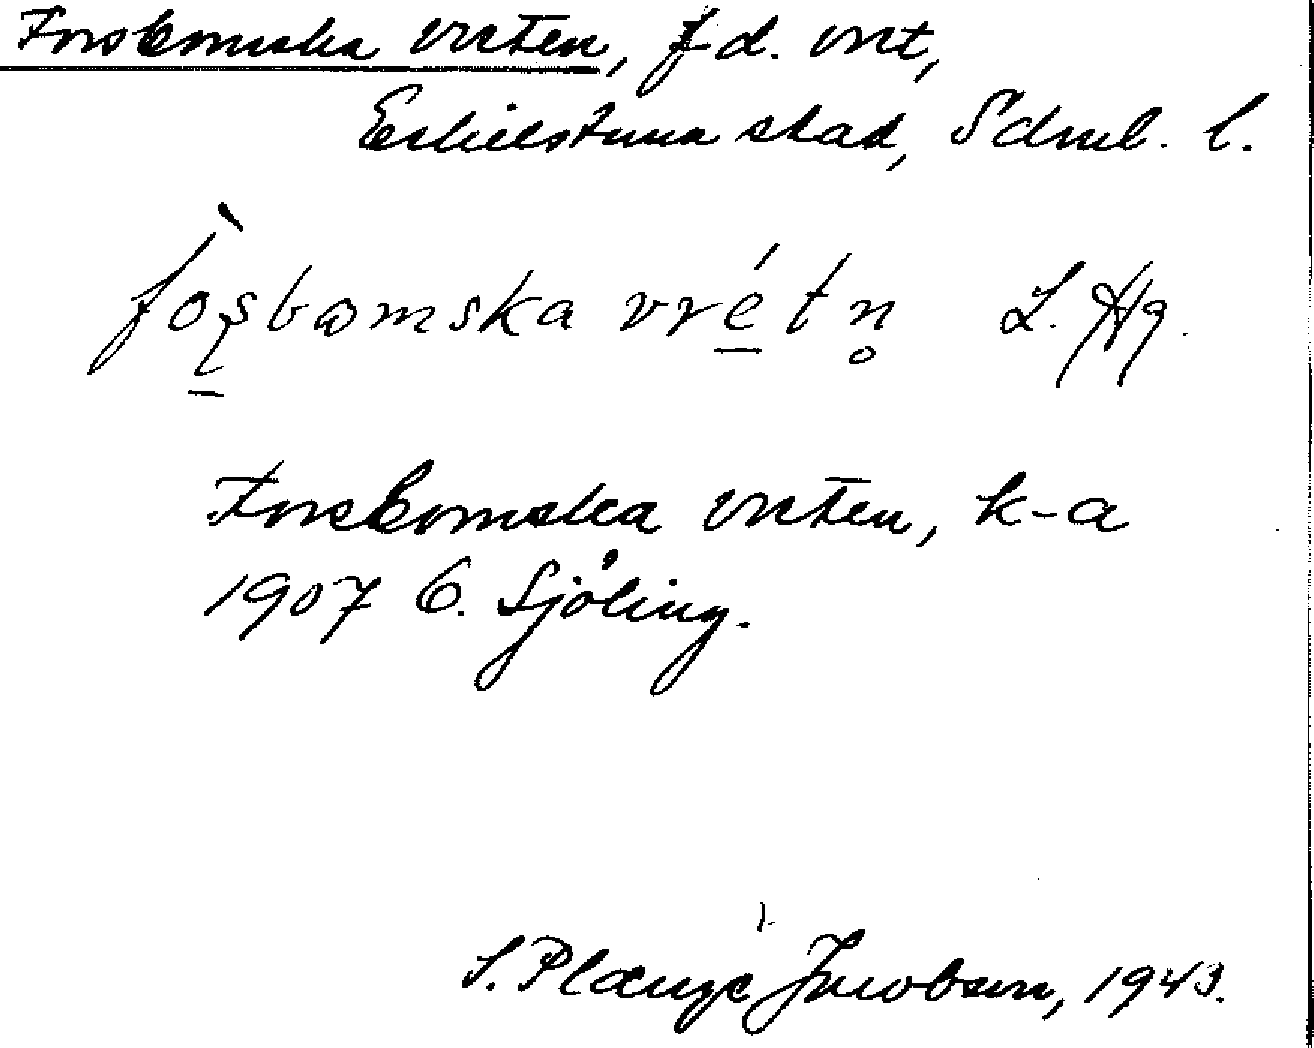 Forsbomska vreten, f d. vret,
Eskilstuna stad, Södml. l.
fòs̱bomska vrétn̥ L. Hg.
Forsbomska vreten, k-a
1907 C. Sjöling.
S. Plænge Jacobson, 1943.